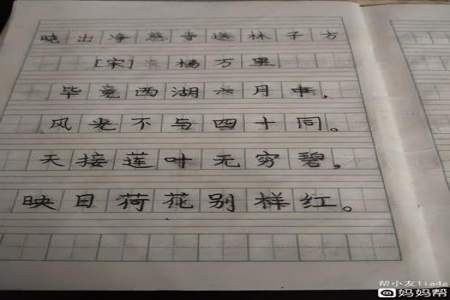 晓出净慈寺送林子方
[宋] 杨万里
毕竟西湖六月中,
风光不与四十同。
天接莲叶无穷碧,
映日荷花别样红。
妈妈帮